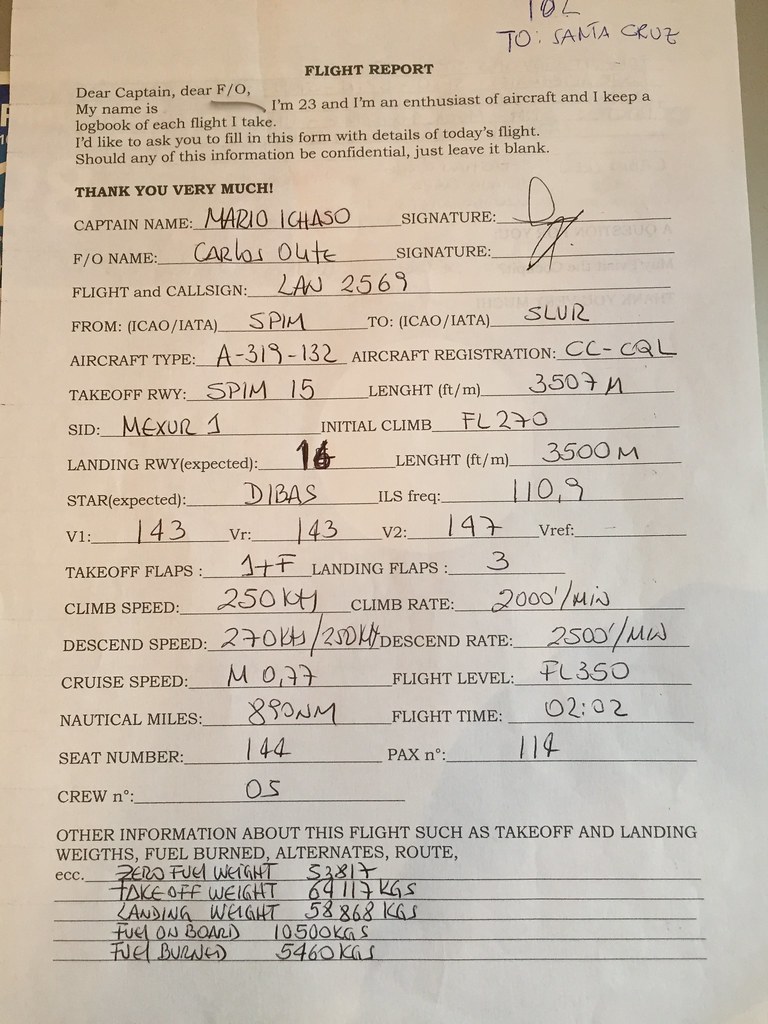 TO: SANTA CRUZ
FLIGHT REPORT
Dear Captain, dear F/O,
My name is I'm 23 and I'm an enthusiast of aircraft and I keep a
logbook of each flight I take.
I'd like to ask you to fill in this form with details of today's flight.
Should any of this information be confidential, just leave it blank.
THANK YOU VERY MUCH!
CAPTAIN NAME: MARIO ICHASO SIGNATURE:
F/O NAME: CARlos SIGNATURE:
FLIGHT and CALLSIGN: LAN 2569
FROM: (ICAO/IATA) SPIM TO: (ICAO/IATA) SLVR
AIRCRAFT TYPE: A-319-132 AIRCRAFT REGISTRATION: CC-CQL
TAKEOFF RWY: SPIM 15 LENGHT (ft/m) 3507 M
SID: MEXUR 1 INITIAL CLIMB FL 270
LANDING RWY(expected): 16 LENGHT (ft/m) 3500 M
STAR(expected): DIBAS ILS freq: 110,9
V1: 143 Vr: 143 V2: 147 Vref:
TAKEOFF FLAPS : 1+F LANDING FLAPS : 3
CLIMB SPEED: 250 Kts CLIMB RATE: 2000'/MIN
DESCEND SPEED: 270 Kts/250 Kts DESCEND RATE: 2500'/MIN
CRUISE SPEED: M 0,77 FLIGHT LEVEL: FL350
NAUTICAL MILES: 890NM FLIGHT TIME: 02:02
SEAT NUMBER: 144 PAX n°: 114
CREW n°: 05
OTHER INFORMATION ABOUT THIS FLIGHT SUCH AS TAKEOFF AND LANDING
WEIGTHS, FUEL BURNED, ALTERNATES, ROUTE,
ecc. ZERO FUEL WEIGHT 53817
TAKE OFF WEIGHT 64117 KGS
LANDING WEIGHT 58868 KGS
FUEL ON BOARD 10500 KGS
FUEL BURNED 5460 KGS